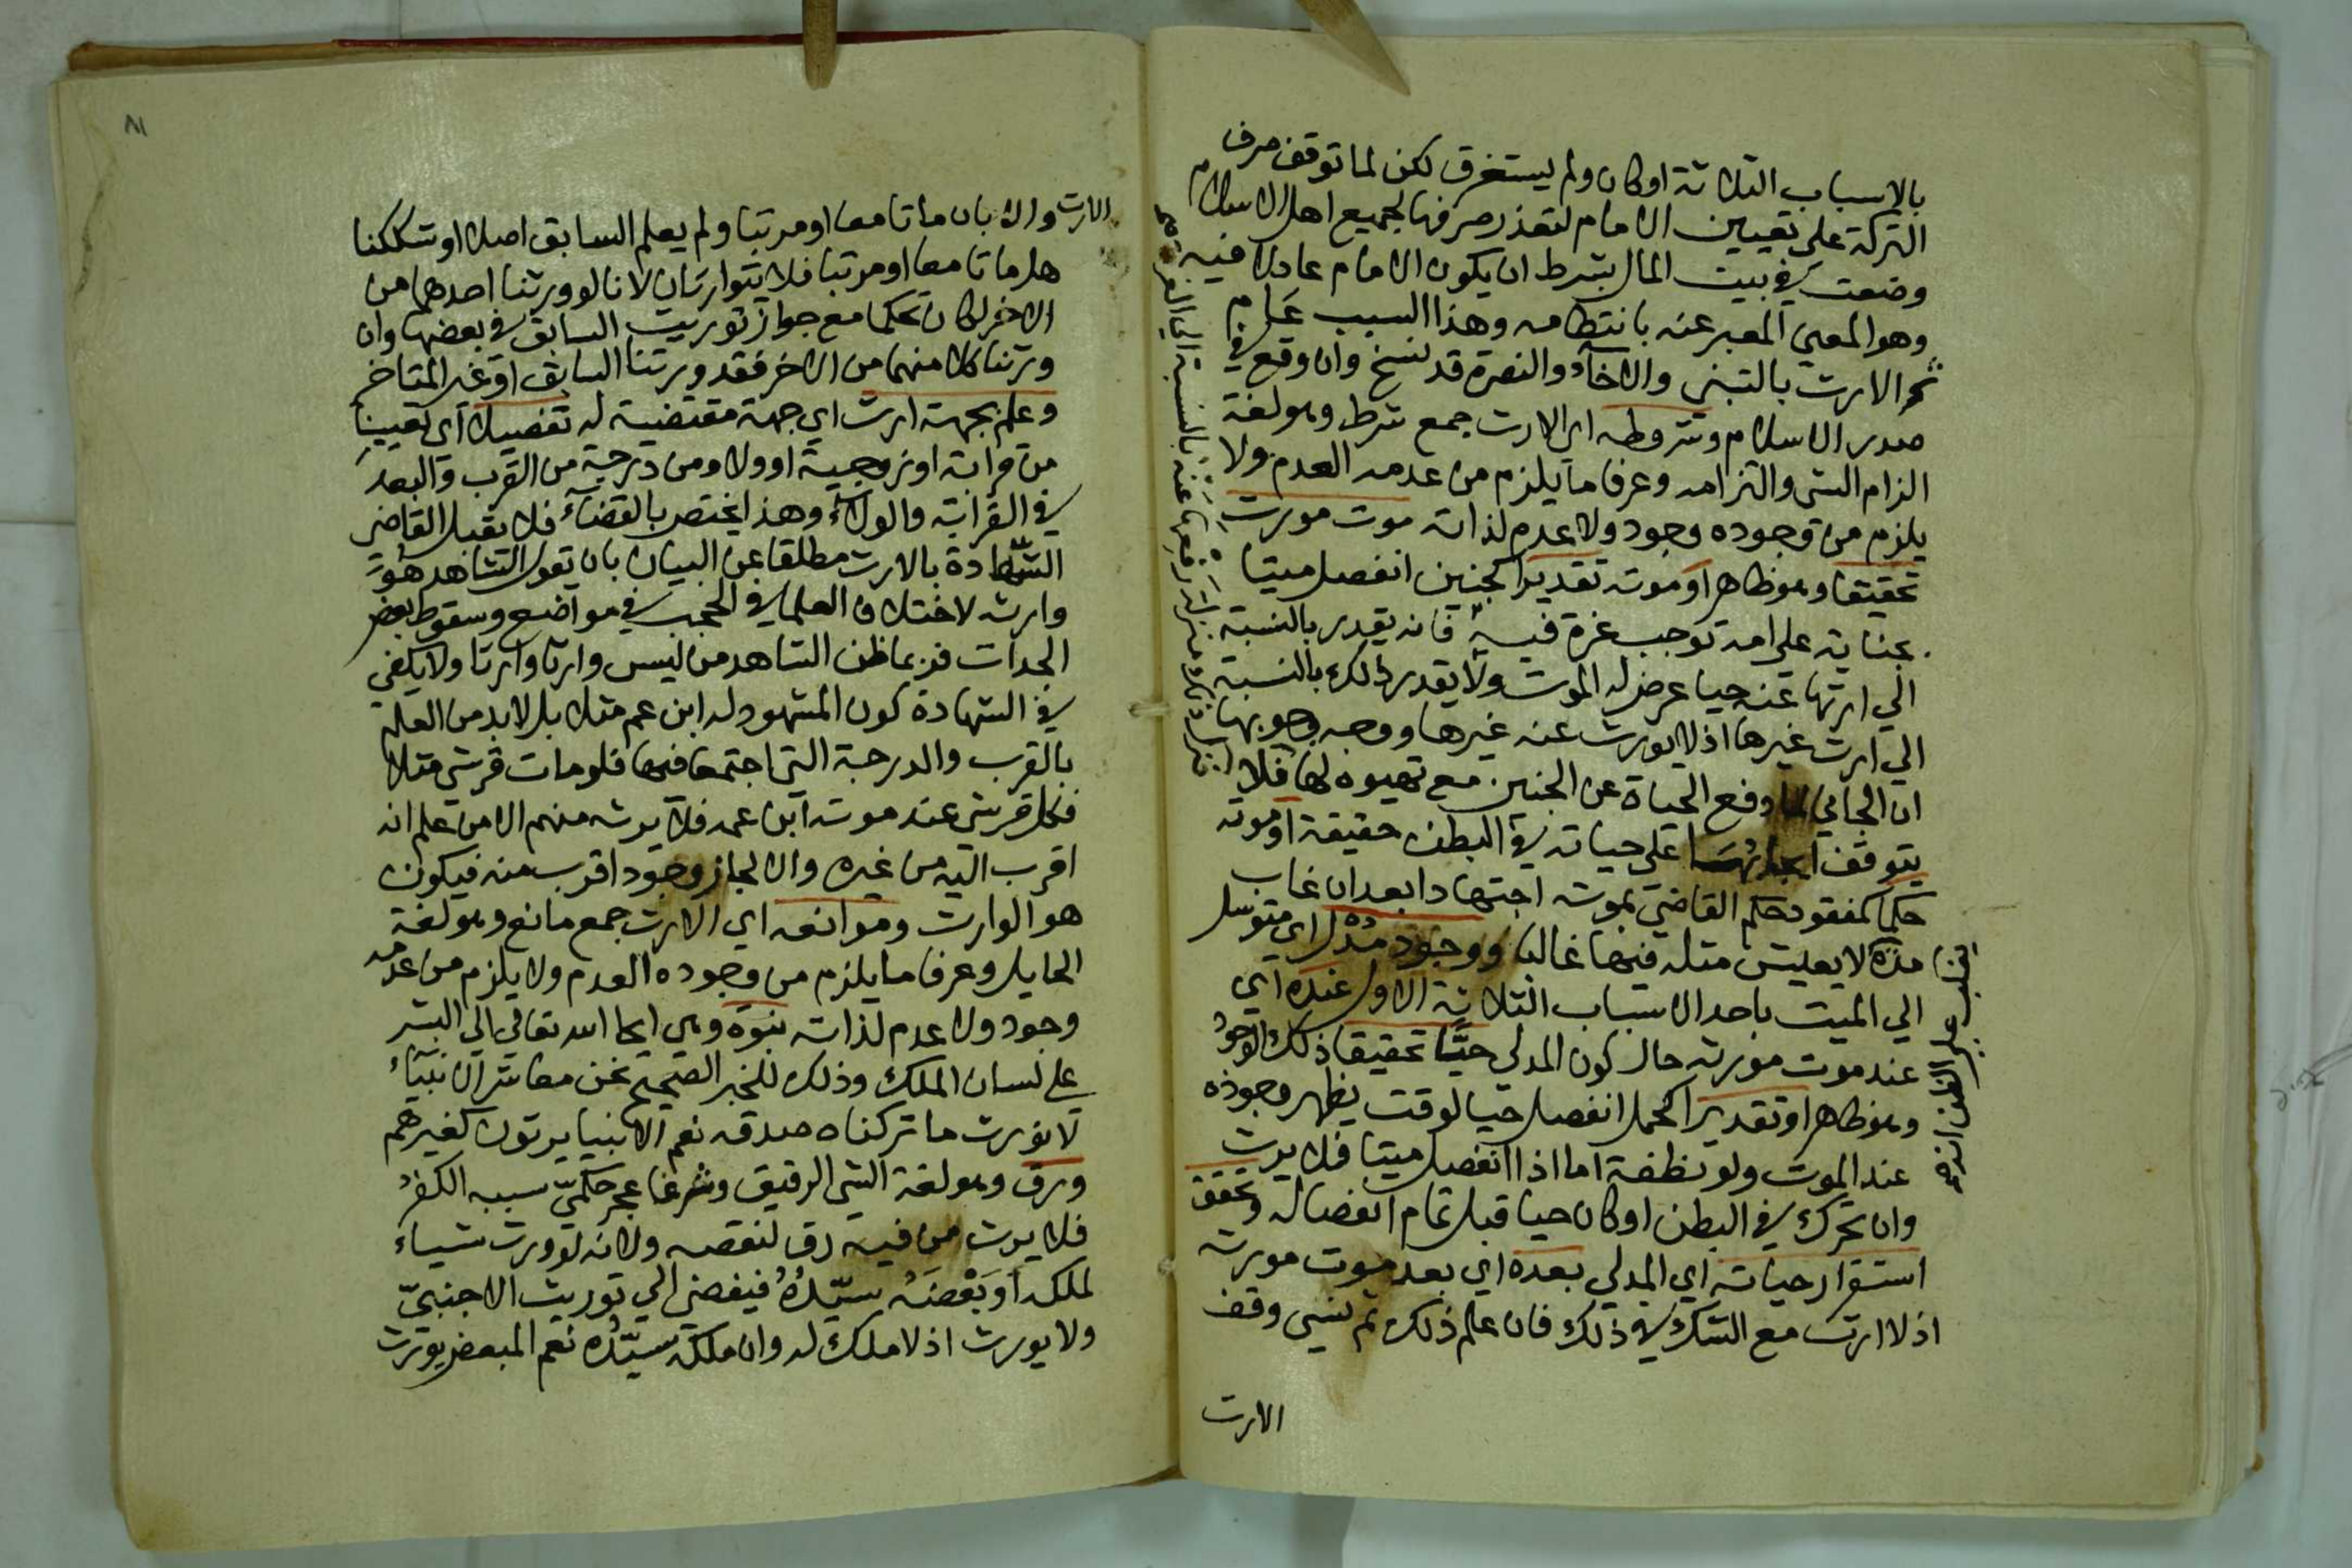 بالاسباب الثلاثة اوكان ولم يستغرق لكن لما توقف صرف
التركة على تعيين الامام لتعذر صرفها لجميع اهل الاسلام
وضعت في بيت المال بشرط ان يكون الامام عادلا فيه
وهو المعني المعبر عنه بانتظامه وهذا السبب عام
نحو الارث بالتبني والاخاء والنصرة قد نسخ وان وقع في
صدر الاسلام وشروطه اي الارث جمع شرط وهو لغة
الزام الشي والتزامه وعرفا ما يلزم من عدمه العدم ولا
يلزم من وجوده وجود ولا عدم لذاته موت مورث
تحقيقا وهو ظاهر او موته تقديرا كجنين انفصل ميتا
بجناية على امه توجب غرة فيه فانه يقدر بالنسبة
الي ارثها عنه حيا عرض له الموت ولا يقدر ذلك بالنسبة
الي ارث غيرها اذ لا يورث عنه غيرها ووجه وجوبها
ان الجاني لما دفع الحياة عن الجنين مع تهيوه لها فلا
يتوقف ايجابها على حياته في البطن حقيقة او موته
حكما كمفقود حكم القاضي بموته اجتهادا بعد ان غاب
مدة لا يعيش مثله فيها غالبا ووجود مدل اي متوسل
الي الميت باحد الاسباب الثلاثة الاول عنده اي
عند موت مورثه حال كون المدلي حيا تحقيقا ذلك الوجود
وهو ظاهر او تقديرا كحمل انفصل حيا لوقت يظهر وجوده
عند الموت ولو نطفة اما اذا انفصل ميتا فلا يرث
وان تحرك في البطن او كان حيا قبل تمام انفصاله وتحقق
استقرار حياته اي المدلي بعده اي بعد موت مورثه
اذ لا ارث مع الشك في ذلك فان علم ذلك ثم نسي وقف
الارث
٨١
الارث والا بان ماتا معا او مرتبا ولم يعلم السابق اصلا او شككنا
هل ماتا معا او مرتبا فلا يتوارثان لانا لو ورثنا احدهما من
الاخر لكان تحكما مع جواز توريث السابق في بعضها وان
ورثنا كلا منهما من الاخر فقد ورثنا السابق او غير المتاخر
وعلم بجهة ارث اي جهة مقتضية له تفصيلا اي تعيينا
من قرابة او زوجية او ولا ومن درجة من القرب والبعد
في القرابة والولاء وهذا يختص بالقضاء فلا يقبل القاضي
الشهادة بالارث مطلقا عن البيان بان يقول الشاهد هو
وارثه لاختلاف العلما في الحجب في مواضع وسقوط بعض
الجدات فربما ظن الشاهد من ليس وارثا وارثا ولا يكفي
في الشهادة كون المشهود له ابن عم مثلا بل لابد من العلم
بالقرب والدرجة التي اجتمعا فيها فلو مات قرشي مثلا
فكل قرشي عند موته ابن عمه فلا يرثه منهم الا من علم انه
اقرب اليه من غيره والا لجاز وجود اقرب منه فيكون
هو الوارث وموانعه اي الارث جمع مانع وهو لغة
الحايل وعرفا ما يلزم من وجوده العدم ولا يلزم من عدمه
وجود ولا عدم لذاته نبوة وهي ايحا الله تعالي الي البشر
على لسان الملك وذلك للخبر الصحيح نحن معاشر الانبياء
لا نورث ما تركناه صدقه نعم الانبيا يرثون كغيرهم
ورق وهو لغة الشي الرقيق وشرعا عجز حكمي سببه الكفر
فلا يرث من فيه رق لنقصه ولانه لو ورث شياء
لملكه او بعضه سيده فيفضي الي توريث الاجنبي
ولا يورث اذ لا ملك له وان ملكه سيده نعم المبعض يورث